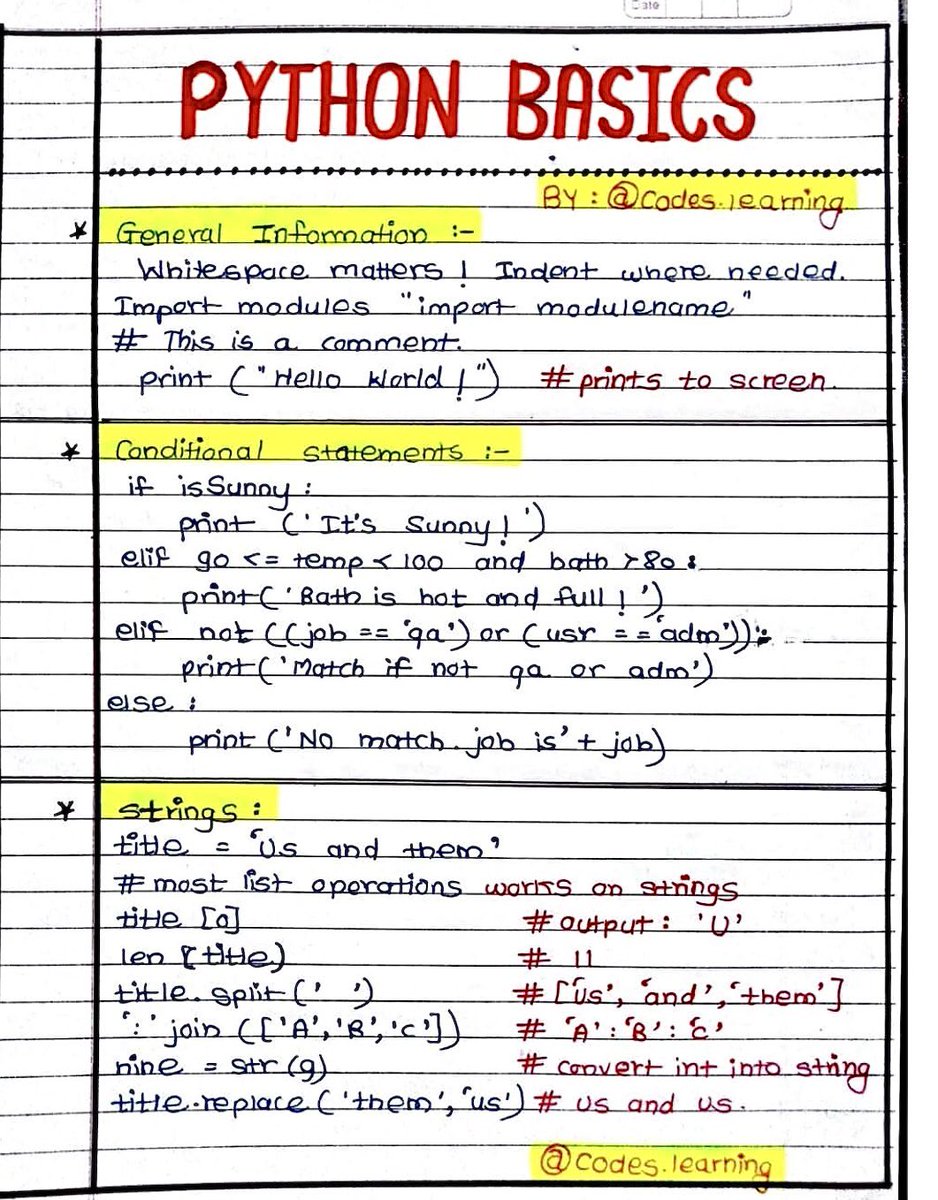 Date
PYTHON BASICS
BY : @codes.learning
* General Information :-
Whitespace matters ! Indent where needed.
Import modules "import modulename"
# This is a comment.
print ("Hello World !") # prints to screen.
* Conditional statements :-
if isSunny :
print ('It's Sunny ! ')
elif 90 <= temp < 100 and bath > 80 :
print ('Bath is hot and full ! ')
elif not ((job == 'qa') or (usr = = 'adm')) :
print ('Match if not qa or adm')
else :
print ('No match. job is' + job)
* strings :
title = 'Us and them'
# most list operations works on strings
title [0] # output : 'U'
len (title) # 11
title. split (' ') # ['us', 'and', 'them']
':' join (['A','B','c']) # 'A' : 'B' : 'c'
nine = str (9) # convert int into string
title.replace ('them', 'us') # us and us.
@codes.learning